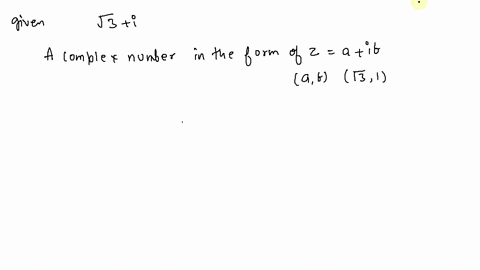 given √3+i
A complex number in the form of z = a+ib
(a,b) (√3,1)